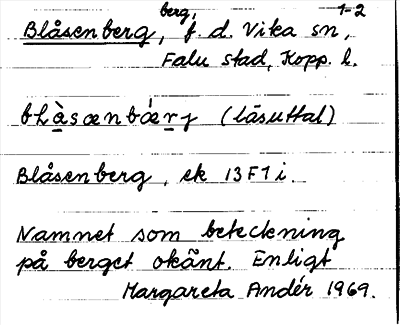 berg, 1-2
Blåsenberg, f. d. Vika sn,
Falu stad, Kopp. l.
bLàsænbárj (läsuttal)
Blåsenberg, ek 13F7i.
Namnet som beteckning
på berget okänt. Enligt
Margareta Andér 1969.